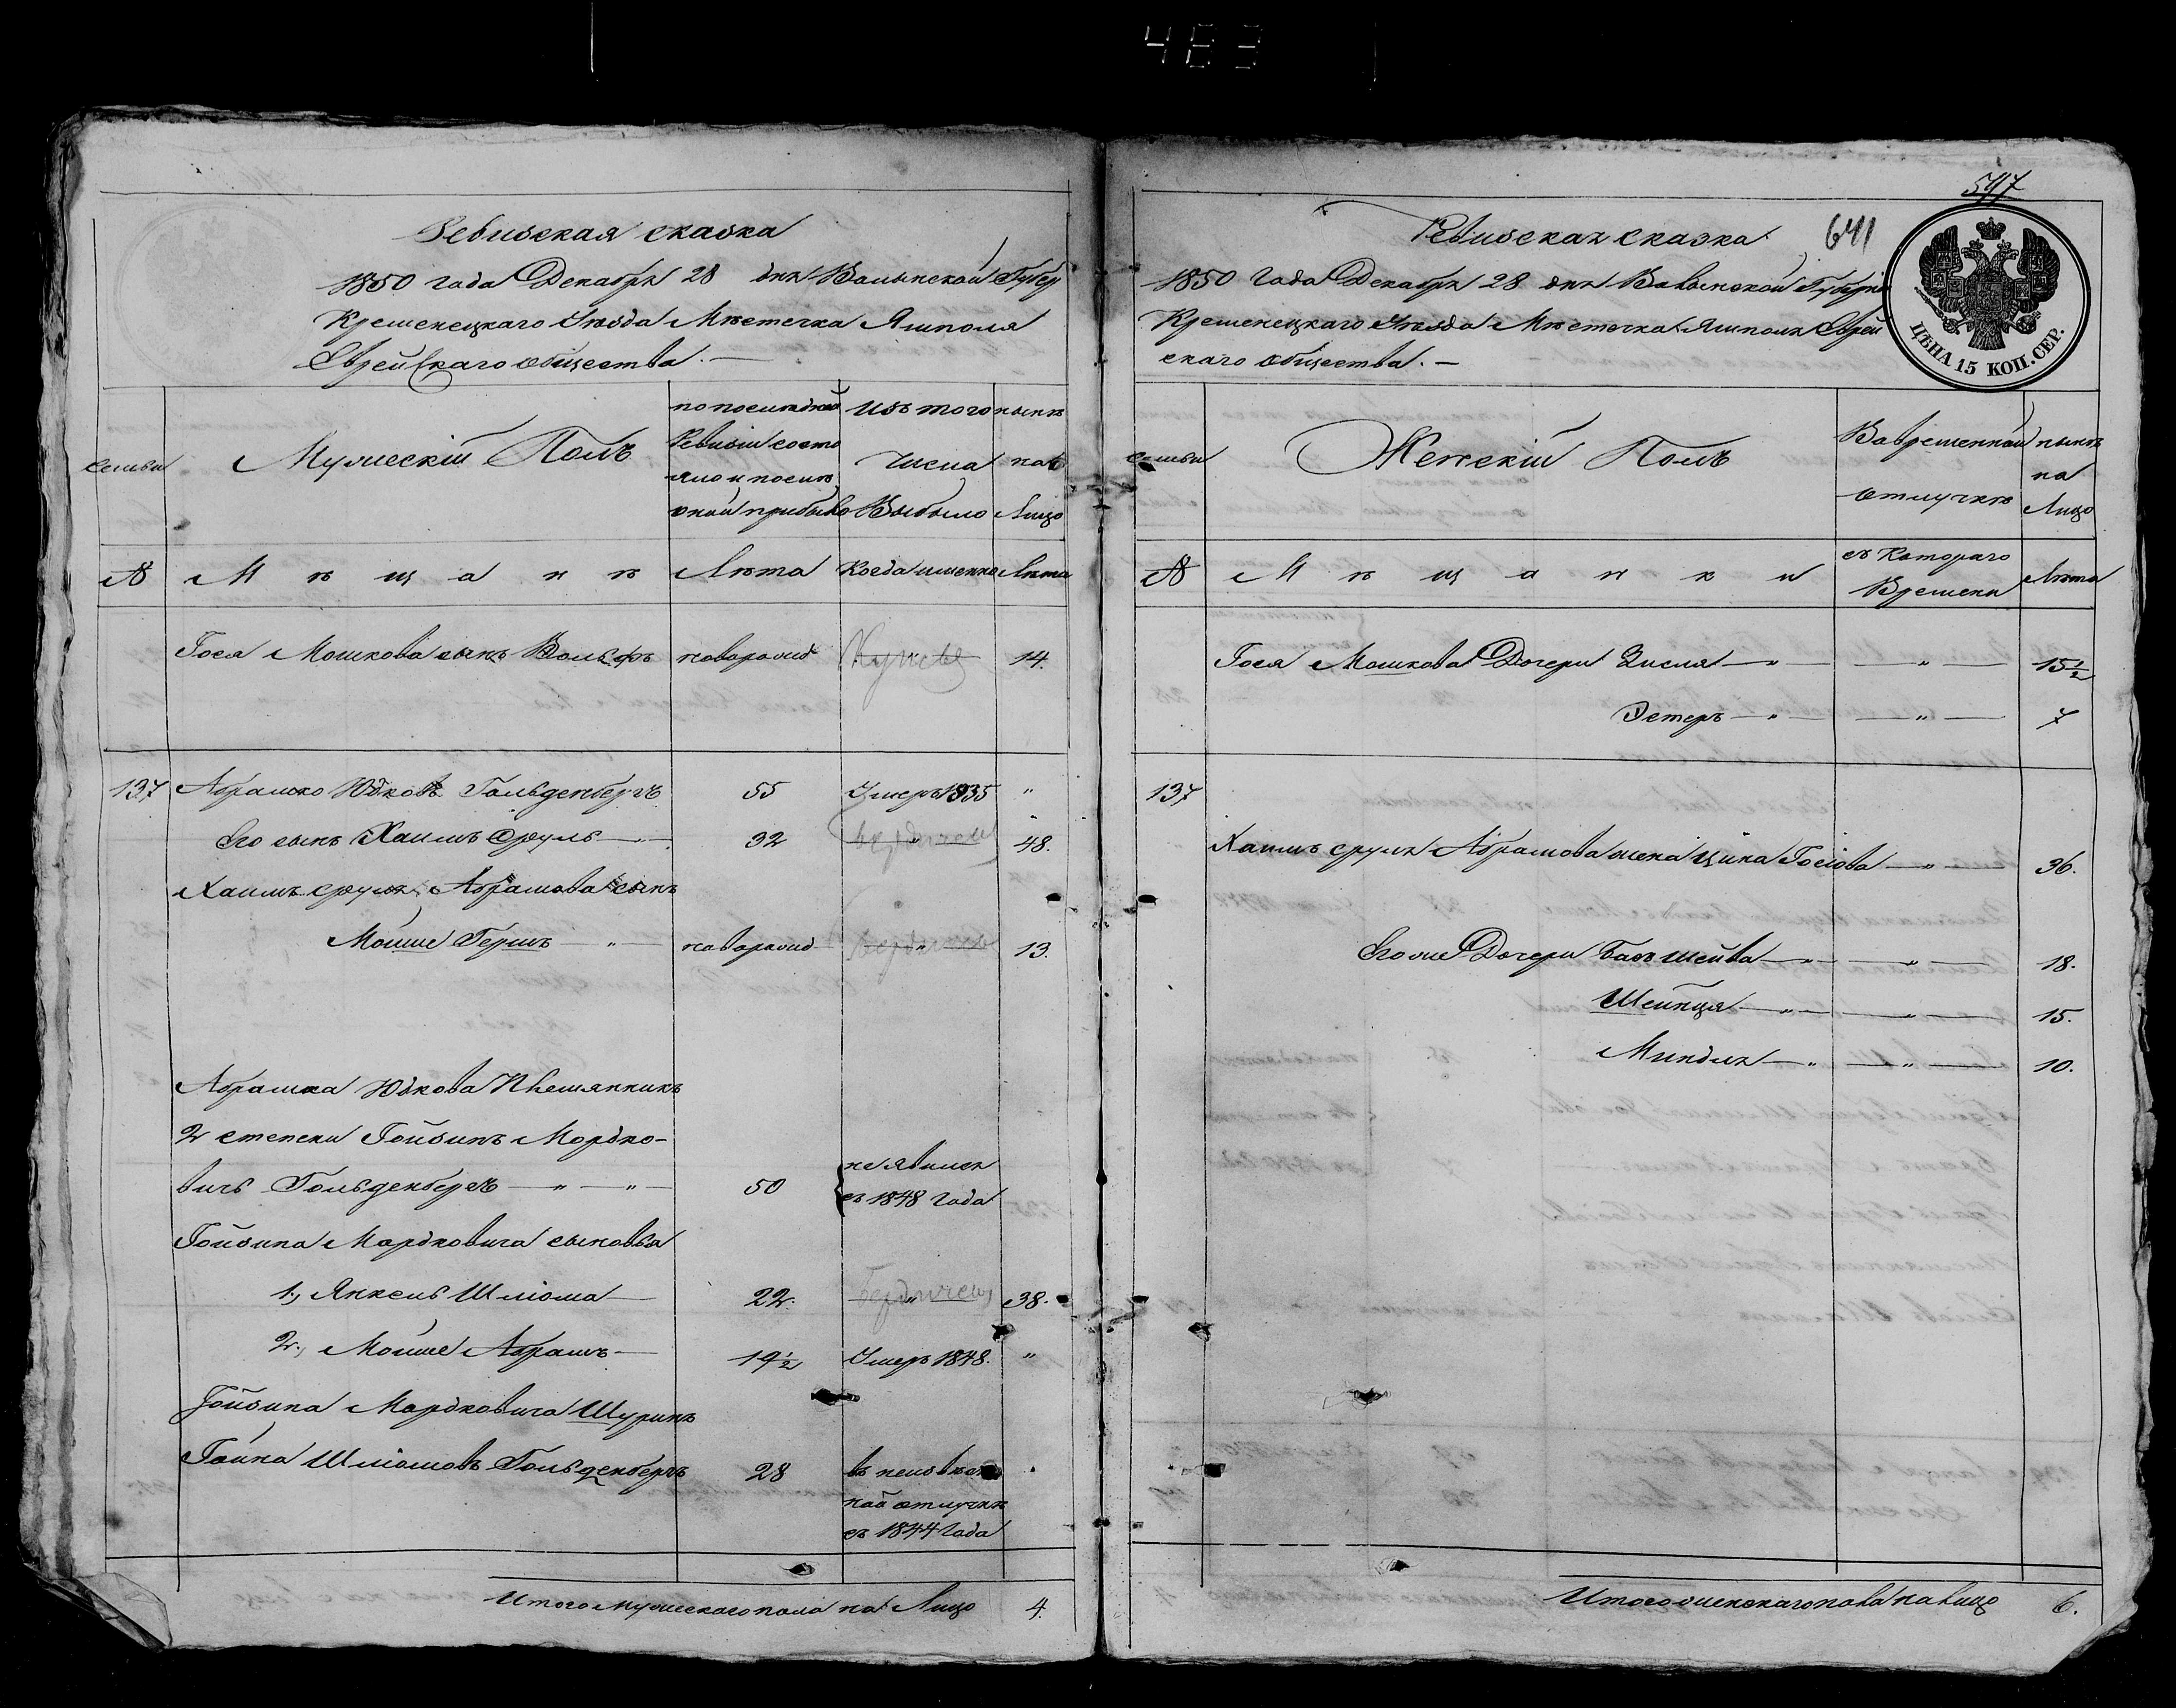 483
Ревизская сказка
1850 года Декабря 28 дня Волынской Губер
Кременецкаго Уезда Местечка Ямполя
Еврейскаго общества. —
семьи
Мужескій Полъ
по последней
Ревизіи состо
яло и после
оной прибыло
Изъ того
числа
Выбыло
ныне
на
Лицо
№
М ѣ щ а н ѣ
Лѣта
Когда именно
Лѣта
Гося Мошкова сынъ Вольфъ новорожд 14.
137 Абрамко Юдковъ Гольденбергъ 55 Умеръ 1835 "
Его сынъ Хаимъ Сруль — " — 32 " 48.
Хаимъ Сруля Абрамова сынъ
Мойше Гершъ — " — новорожд Бердичевъ 13.
Абрамка Юдкова Племянникъ
2 степени Гойзинъ Мордко-
вичъ Гольденбергъ — " — " — 50 не явился
съ 1848 года
Гойзина Мордковича сыновья
1, Янкель Шліома — 22. Бердичевъ 38.
2, Мойше Абрамъ — 19½ Умеръ 1848. "
Гойзина Мордковича Шуринъ
Гойна Шліомовъ Гольденбергъ 28 въ неизвѣст
ной отлучкѣ
съ 1844 года
Итого мужескаго пола на Лицо 4.
597
641
Ревизская сказка
1850 Года Декабря 28 дня Волынской Губерніи
Кременецкаго Уезда Местечка Ямполя Еврей
скаго общества. —
ЦѢНА 15 КОП. СЕР.
семьи
Женскій Полъ
Во временной
отлучкѣ
ныне
на
Лицо
№
М ѣ щ а н к и
съ Котораго
Времени
Лѣта
Гося Мошкова Дочери Зисля — " — — " — 15½
Эстеръ — " — — " — 7
137
Хаимъ Сруля Абрамова жена Цина Госіова — " — 36.
Его же Дочери Басъ Шейва — " — — " — 18.
Шейнця — " — — " — 15.
Миндля — " — — " — 10.
Итого женскаго пола на лицо 6.